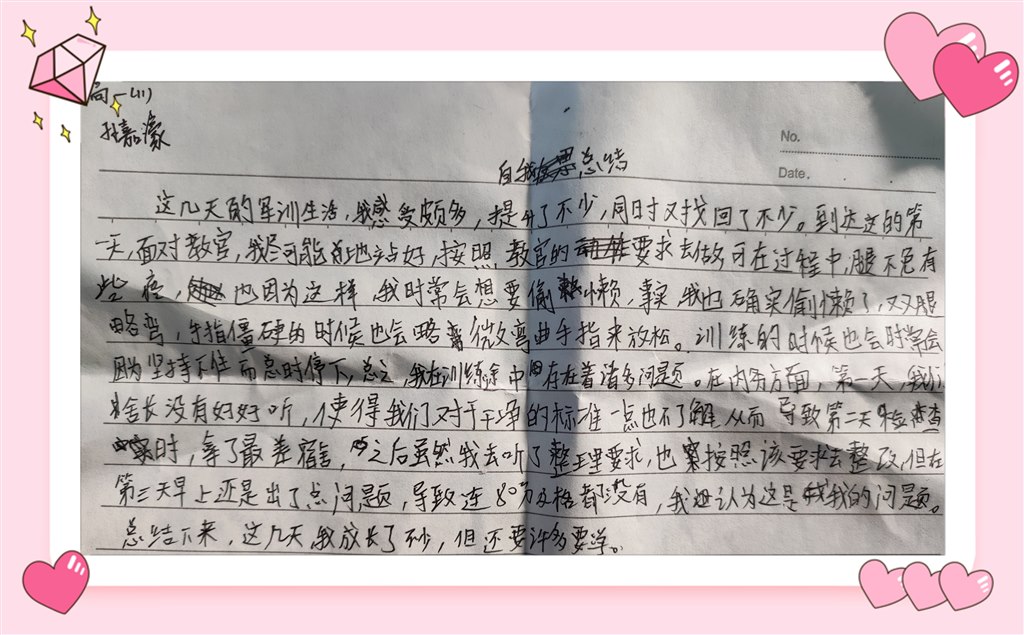 高一(11)
杜嘉濠
No.
自我总结
Date.
这几天的军训生活,我感受颇多,提升了不少,同时又找回了不少。到达这的第
一天,面对教官,我尽可能地站好,按照教官的要求去做,可在过程中,腿不免有
些疼,也因为这样,我时常会想要偷懒,事实,我也确实偷懒了,双腿
略弯,手指僵硬的时候也会略微弯曲手指来放松。训练的时候也会时常会
因为坚持不住而急时停下,总之,我在训练途中存在着诸多问题。在内务方面,第一天,我们
舍长没有好好听,使得我们对于干净的标准一点也不了解,从而导致第二天检查
时,拿了最差宿舍,之后虽然我去听了整理要求,也按照该要求去整改,但在
第三天早上还是出了点问题,导致连80分及格都没有,我认为这是我的问题。
总结下来,这几天,我成长了不少,但还要许多要学。